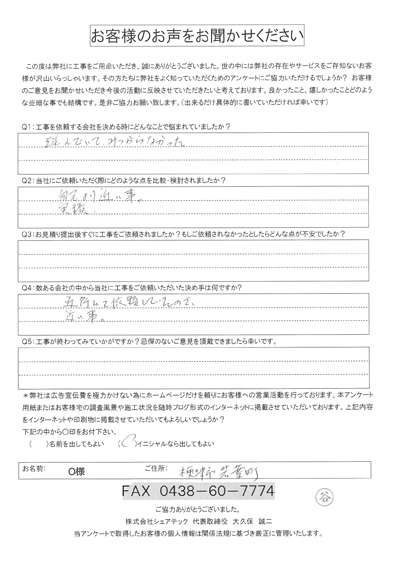 お客様のお声をお聞かせください
この度は弊社に工事をご用命いただき、誠にありがとうございました。世の中には弊社の存在やサービスをご存知ないお客
様が沢山いらっしゃいます。その方たちに弊社をよく知っていただくためのアンケートにご協力いただけるでしょうか？ お客様
のご意見をお聞かせいただき今後の活動に反映させていただきたいと考えております。良かったこと、嬉しかったことどのよう
な些細な事でも結構です。是非ご協力お願い致します。（出来るだけ具体的に書いていただければ幸いです）
Q1：工事を依頼する会社を決める時にどんなことで悩まれていましたか？
みつからなかった
Q2：当社にご依頼いただく際にどのような点を比較・検討されましたか？
自宅より近い事。
実績
Q3：お見積り提出後すぐに工事をご依頼されましたか？もしご依頼されなかったとしたらどんな点が不安でしたか？
Q4：数ある会社の中から当社に工事をご依頼いただいた決め手は何ですか？
近所にて依頼していたので、
近い事。
Q5：工事が終わってみていかがですか？忌憚のないご意見を頂戴できましたら幸いです。
＊弊社は広告宣伝費を極力かけない為にホームページだけを頼りにお客様への営業活動を行っております。本アンケート
用紙またはお客様宅の調査風景や施工状況を随時ブログ形式のインターネットに掲載させていただいております。上記内容
をインターネットや印刷物に掲載させていただいてもよろしいでしょうか？
下記の中から〇印をお付下さい。
（ ）名前を出してもよい （〇）イニシャルなら出してもよい
お名前： O様 ご住所： 若葉町
FAX 0438-60-7774
谷
ご協力ありがとうございました。
株式会社シェアテック 代表取締役 大久保 誠二
当アンケートで取得したお客様の個人情報は関係法規に基づき厳正に管理いたします。